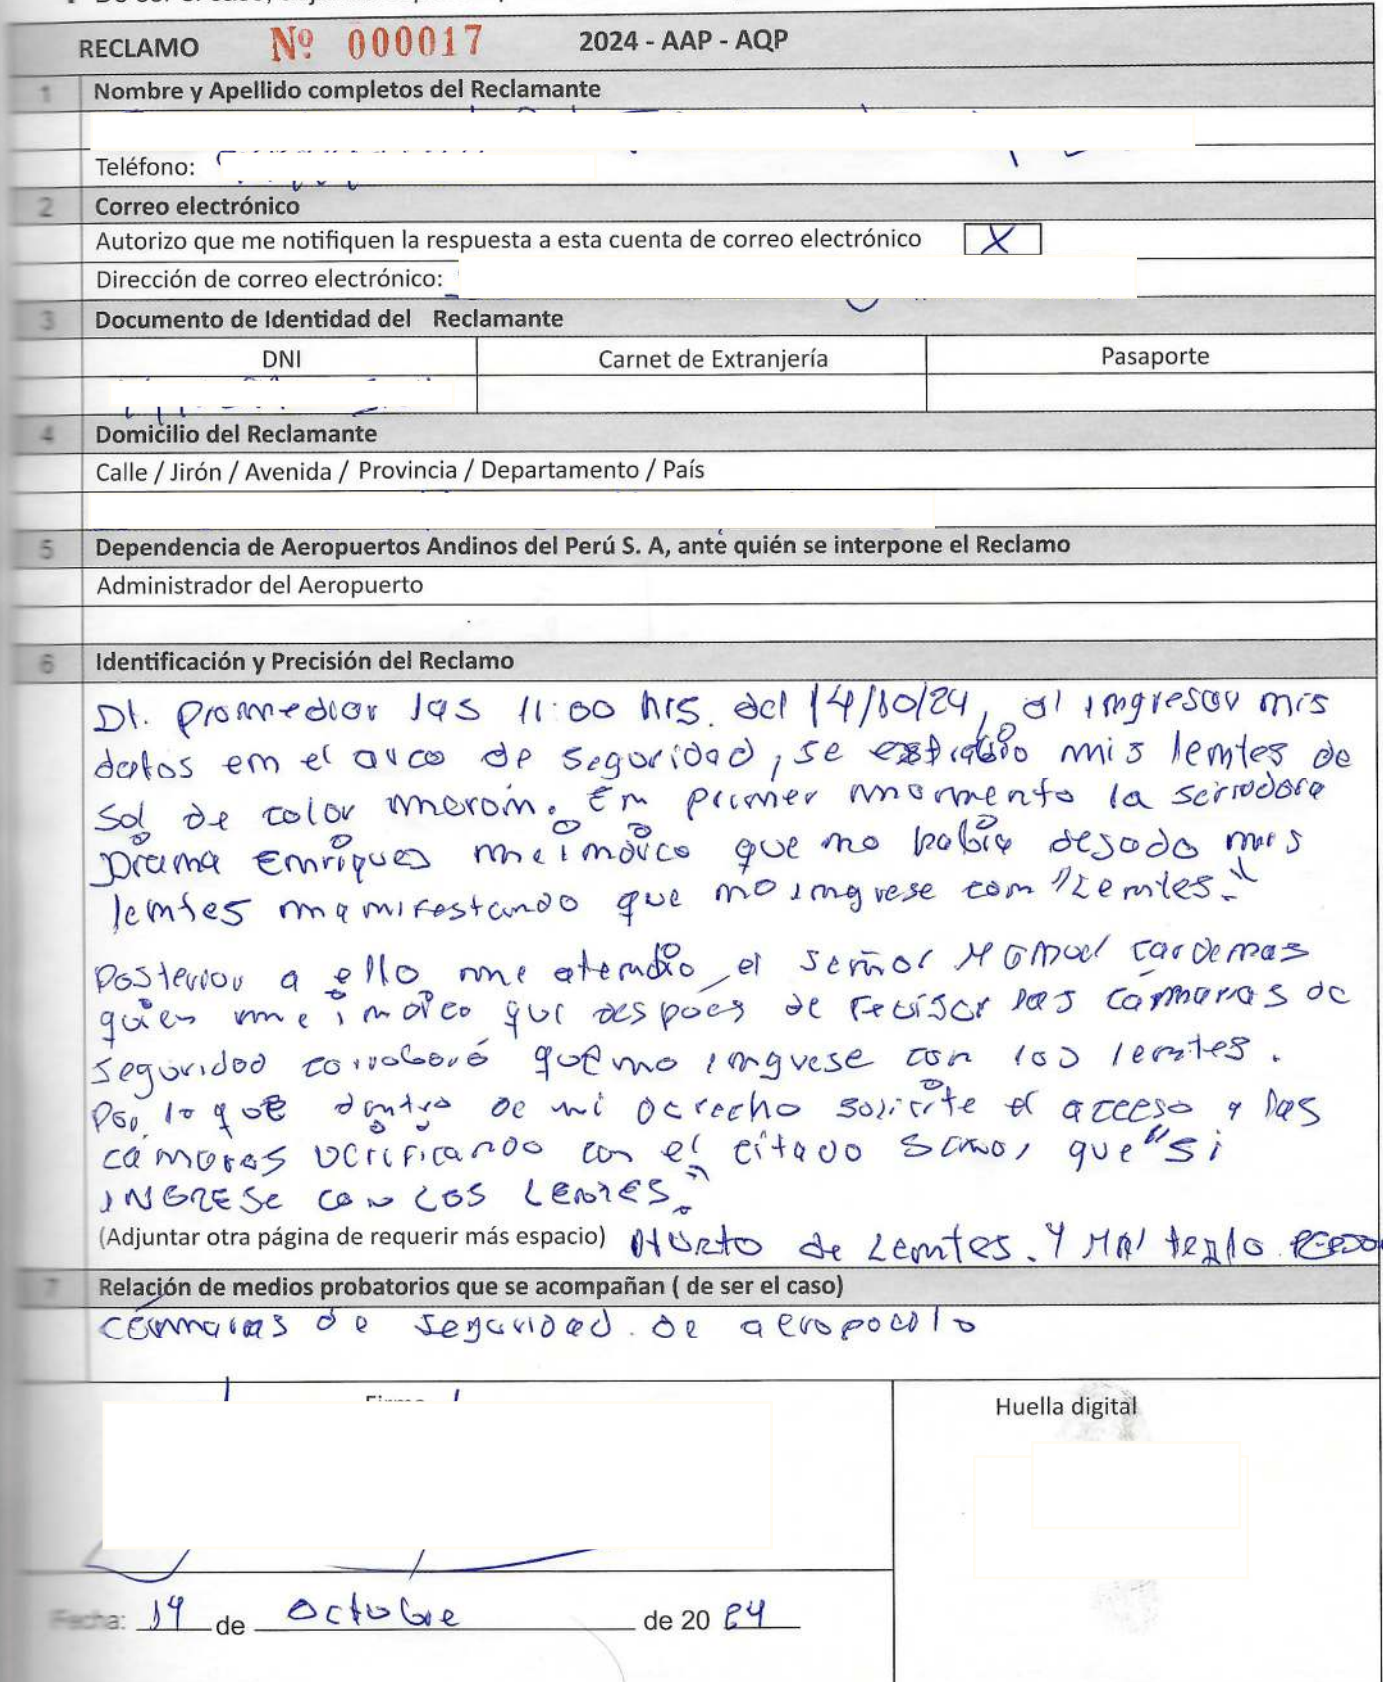 RECLAMO Nº 000017 2024 - AAP - AQP
1 Nombre y Apellido completos del Reclamante
Teléfono:
2 Correo electrónico
Autorizo que me notifiquen la respuesta a esta cuenta de correo electrónico X
Dirección de correo electrónico:
3 Documento de Identidad del Reclamante
DNI Carnet de Extranjería Pasaporte
4 Domicilio del Reclamante
Calle / Jirón / Avenida / Provincia / Departamento / País
5 Dependencia de Aeropuertos Andinos del Perú S. A, ante quién se interpone el Reclamo
Administrador del Aeropuerto
6 Identificación y Precisión del Reclamo
Al promediar las 11:00 hrs. del 14/10/24, al ingresar mis
datos en el arco de seguridad, se extravio mis lentes de
Sol de color marrón. En primer momento la servidora
Diana Enriques me indico que no habia dejado mis
lentes manifestando que no ingrese con "Lentes."
Posterior a ello me atendio el señor Manuel Cardenas
quien me indico que despues de revisar las cámaras de
seguridad corroboró que no ingrese con los lentes.
Por lo que dentro de mi derecho solicite el acceso a las
cámaras verificando con el citado señor que "si
INGRESE con LOS LENTES."
(Adjuntar otra página de requerir más espacio) HURTO de Lentes. Y MAl
7 Relación de medios probatorios que se acompañan ( de ser el caso)
cámaras de seguridad. de
Huella digital
Fecha: 14 de Octubre de 20 24